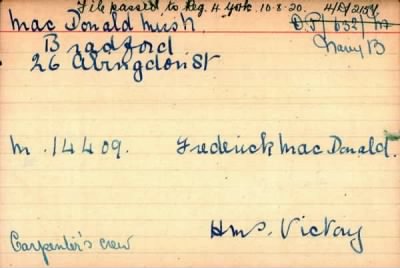 File passed to Reg. 4 York. 10.8.20. 4/R/2154
Mac Donald Mrs H. D.P./652/M
Bradford Navy B
26 Abingdon St
M. 14409. Frederick Mac Donald.
HMS. Victory
Carpenter's crew